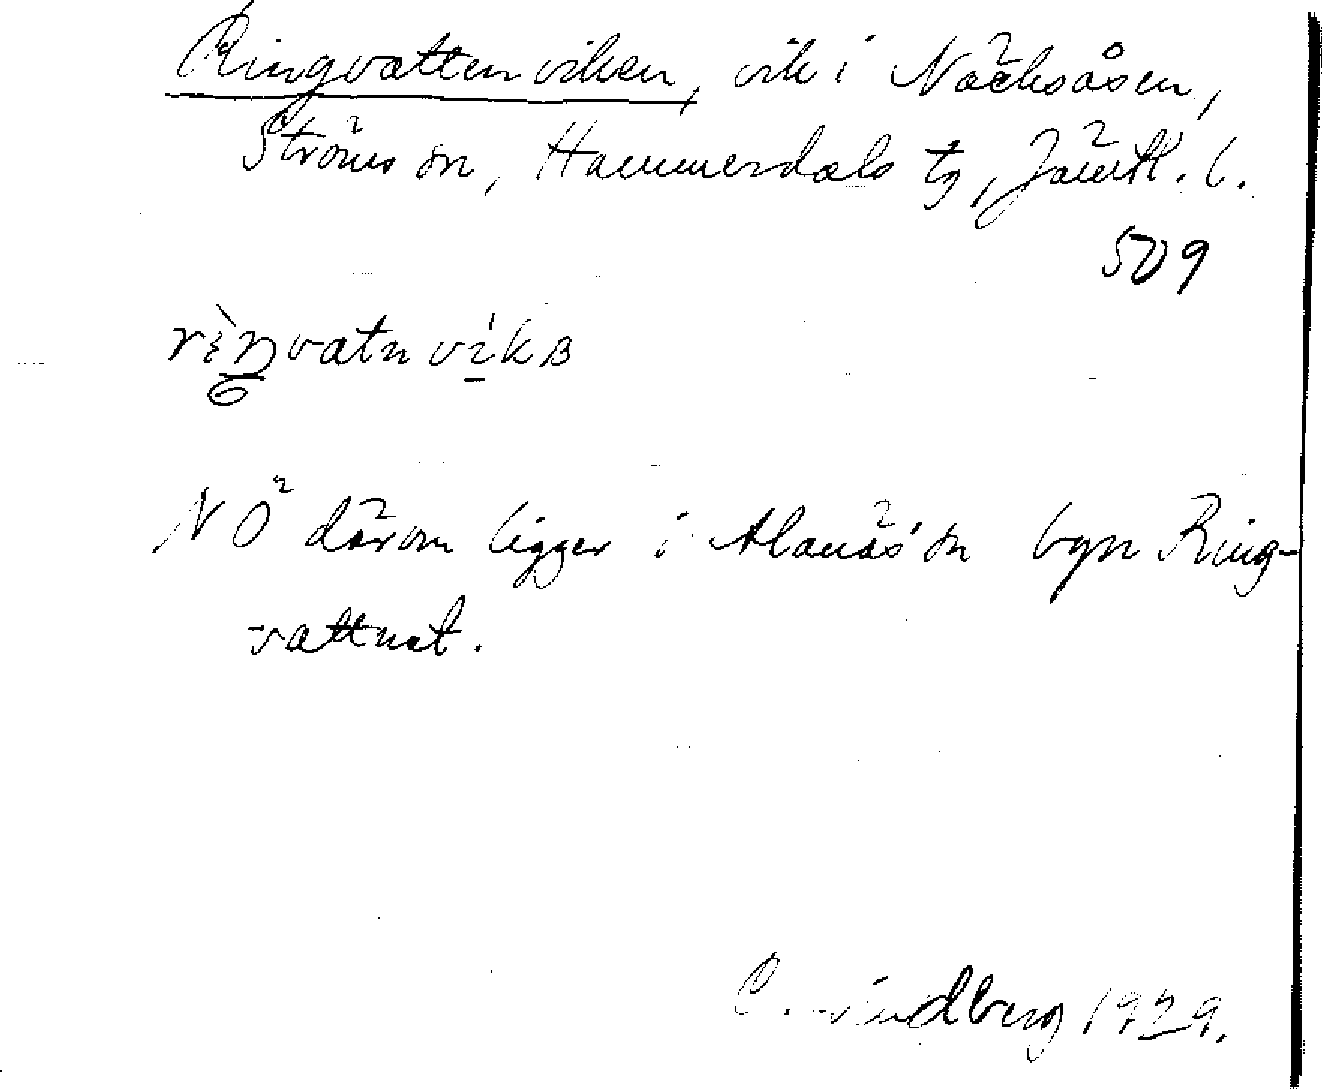 Ringvattenviken, vik i Näcksåsen,
Ströms sn, Hammerdals tg, Jämtl. l.
509
NÖ därom ligger i Alanäs sn byn Ring-
vattnet.
C. Lindberg 1929.